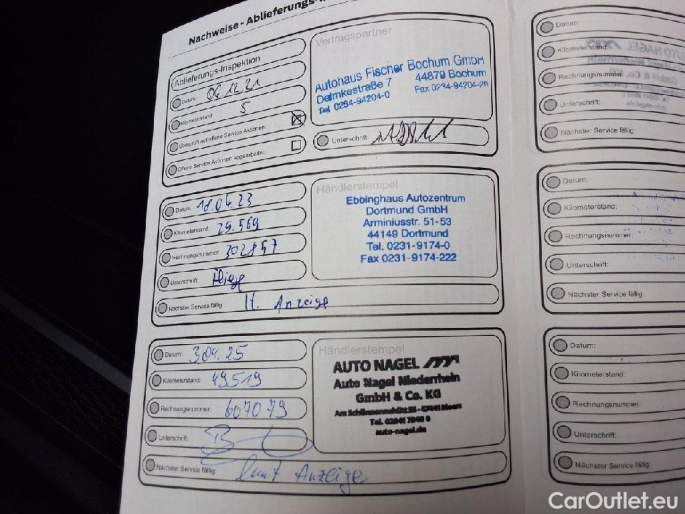 Nachweise - Ablieferungs-
Ablieferungs-Inspektion
Vertragspartner
Datum: 06.12.21
Kilometerstand: 5
Autohaus Fischer Bochum GmbH
Dalmkestraße 7 44879 Bochum
Tel 0234-94204-0 Fax
Überprüft auf offene Service Aktionen:
Offene Service Aktionen abgearbeitet:
Unterschrift:
Datum: 18.04.23
Händlerstempel
Kilometerstand: 29.569
Rechnungsnummer: 302857
Unterschrift:
Nächster Service fällig: lt. Anzeige
Ebbinghaus Autozentrum
Dortmund GmbH
Arminiusstr. 51-53
44149 Dortmund
Tel. 0231-9174-0
Fax 0231-9174-222
Datum: 3.04.25
Händlerstempel
Kilometerstand: 49519
Rechnungsnummer: 607079
Unterschrift:
Nächster Service fällig: laut Anzeige
AUTO NAGEL
Auto Nagel Niederrhein
GmbH & Co. KG
auto-nagel.de
Datum:
Kilometerstand:
Rechnungsnummer:
Unterschrift:
Nächster Service fällig:
Datum:
Kilometerstand:
Rechnungsnummer:
Unterschrift:
Nächster Service fällig:
Datum:
Kilometerstand:
Rechnungsnummer:
Unterschrift:
Nächster Service fällig:
CarOutlet.eu